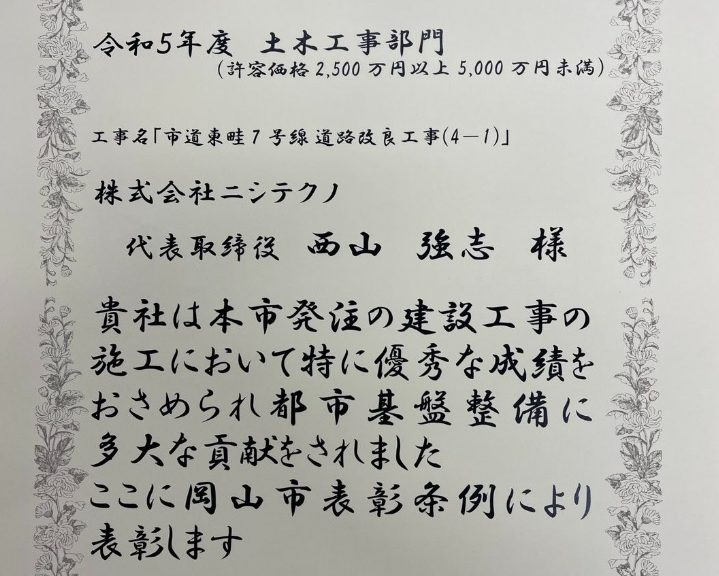 令和5年度 土木工事部門
(許容価格2,500万円以上5,000万円未満)
工事名「市道東畦7号線道路改良工事(4－1)」
株式会社ニシテクノ
代表取締役 西山 強志 様
貴社は本市発注の建設工事の
施工において特に優秀な成績を
おさめられ都市基盤整備に
多大な貢献をされました
ここに岡山市表彰条例により
表彰します